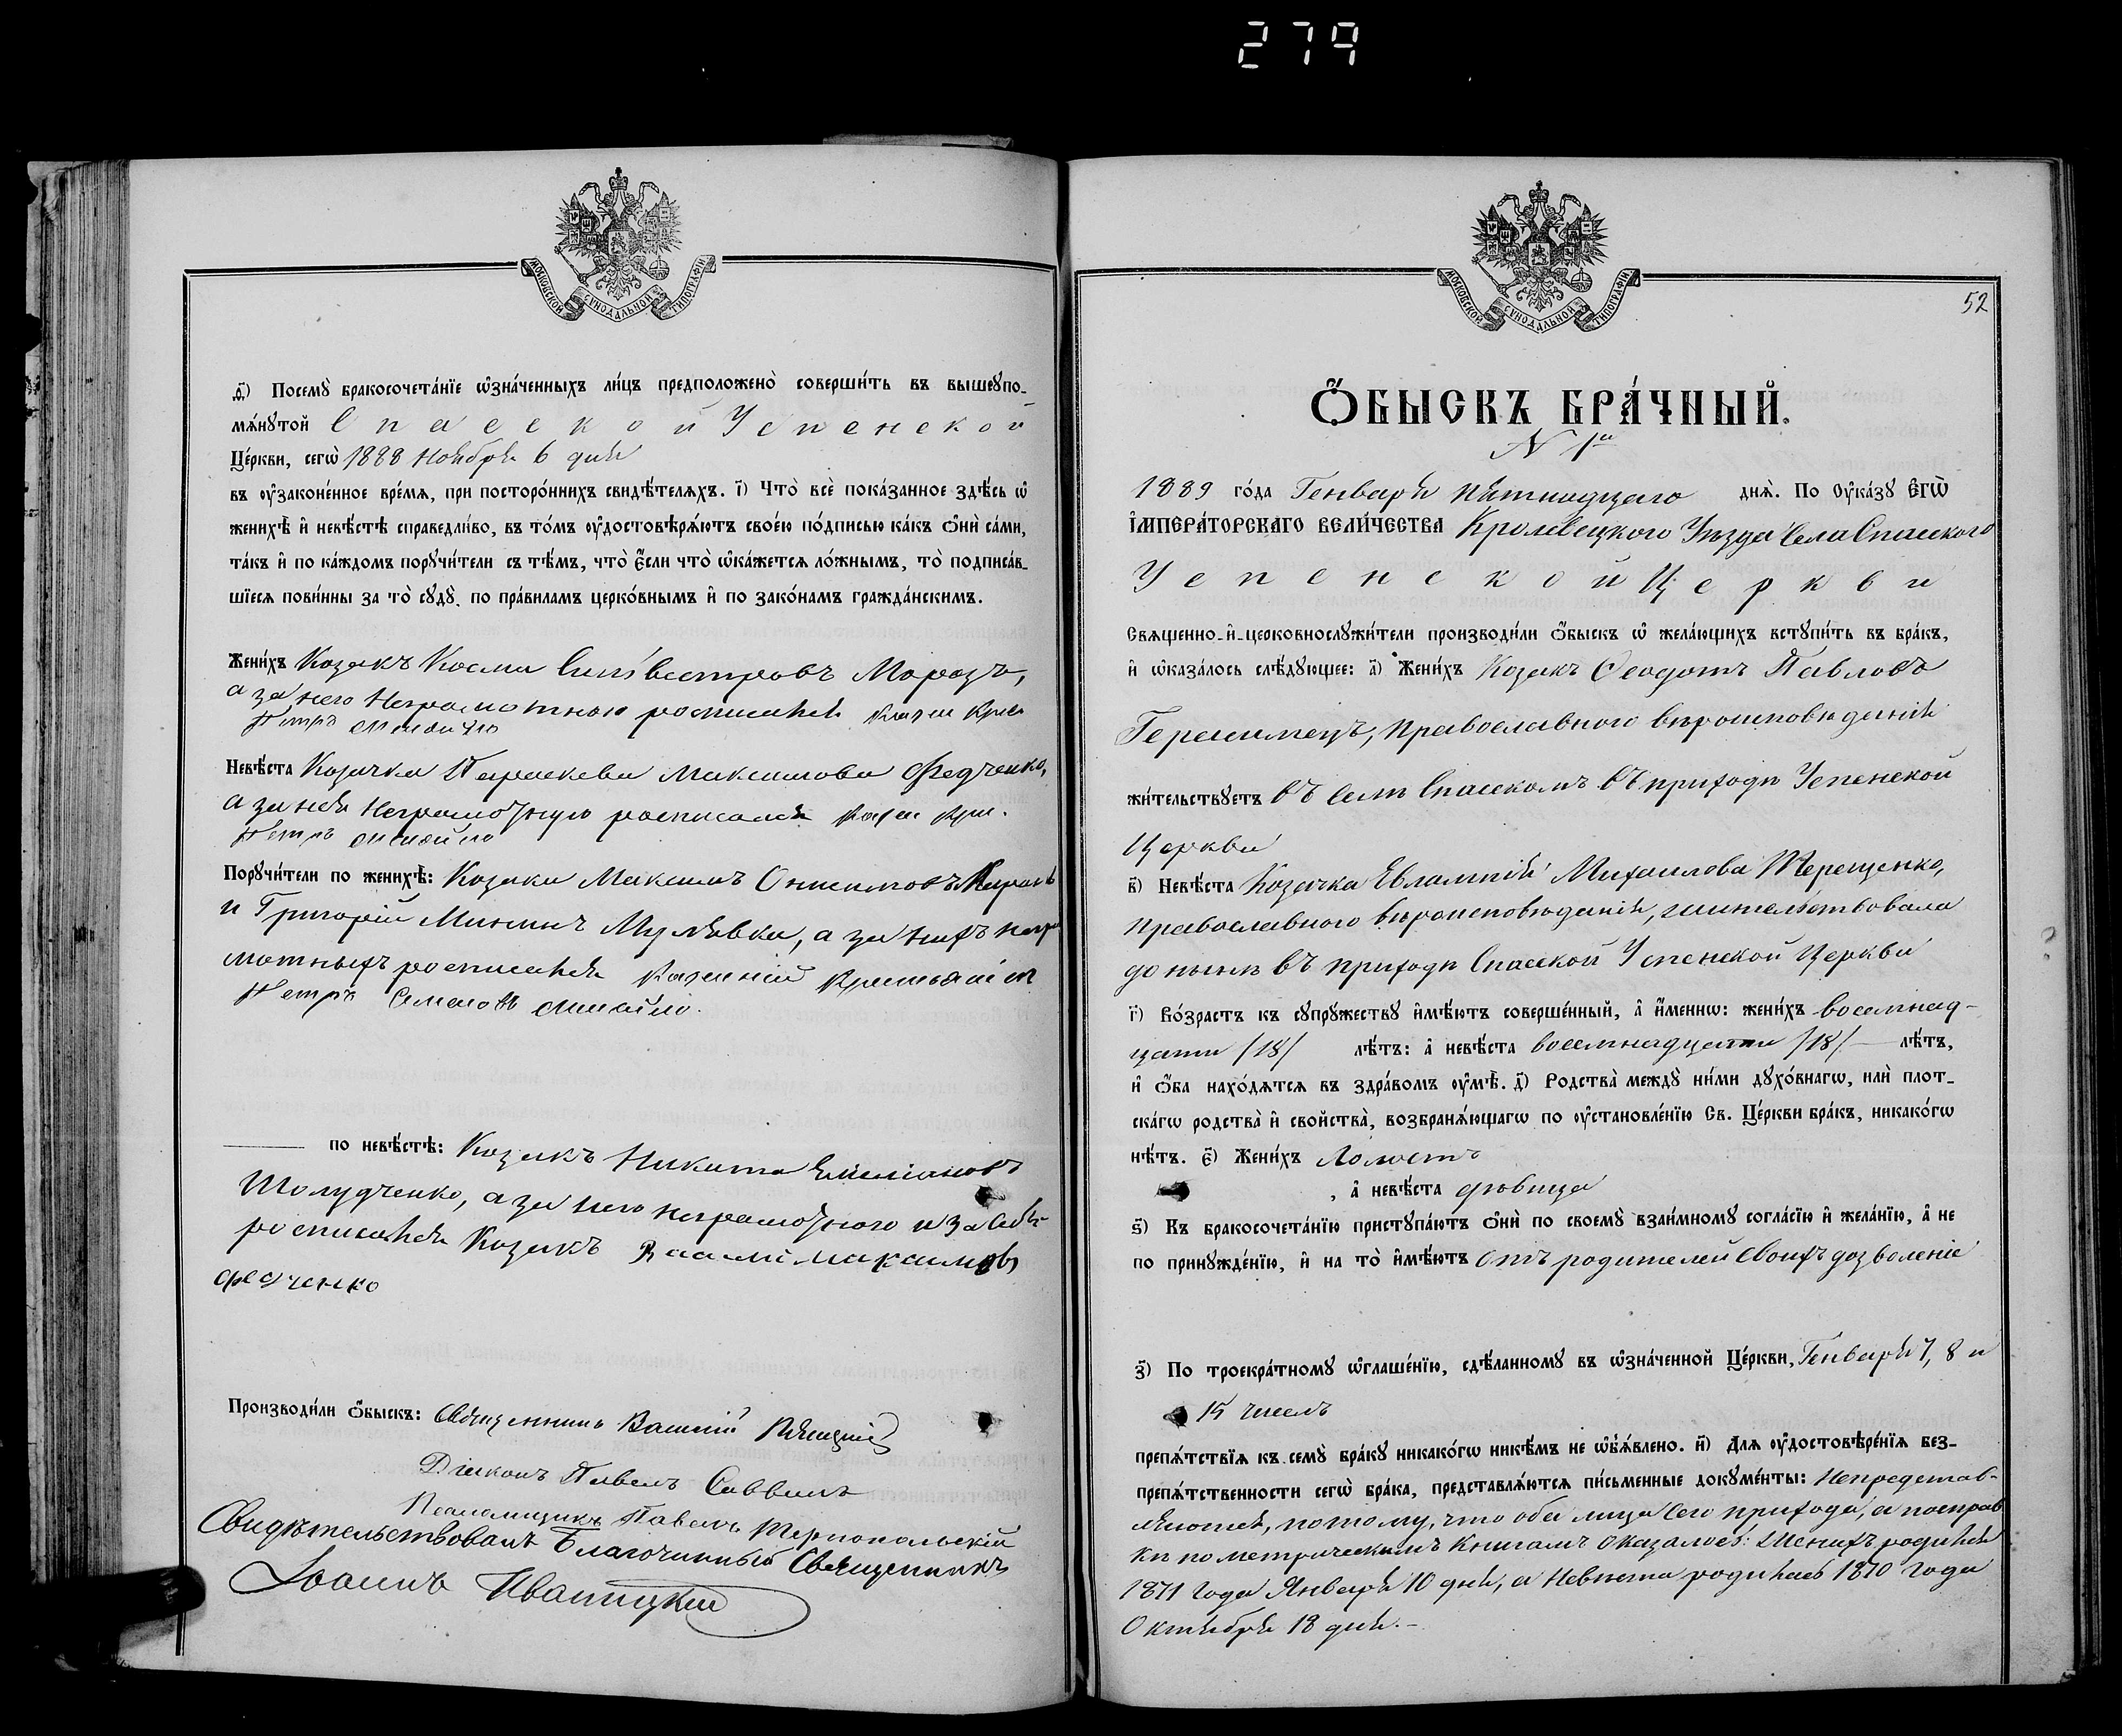 279
МОСКОВСКОЙ СУНОДАЛЬНОЙ ТИПОГРАФІИ
д҃) Посемꙋ̀ бракосочета́нїе ѡ҆зна́ченныхъ ли́цъ предположено̀ соверши́ть въ вышеꙋпо-
мѧ́нꙋтой Спасской Успенской
Це́ркви, сегѡ̀ 1888 Ноября 6 дня
въ оу҆законе́нное вре́мѧ, при посторо́ннихъ свидѣ́телѧхъ. і҃) Что̀ всѐ пока́занное здѣ́сь ѡ҆
женихѣ̀ и҆ невѣ́стѣ справедли́во, въ то́мъ оу҆достовѣрѧ́ютъ свое́ю по́дписью ка́къ ѻ҆нѝ са́ми,
та́къ и҆ по ка́ждомъ порꙋчи́тели съ тѣ́мъ, что̀ є҆́сли что̀ ѡ҆ка́жетсѧ ло́жнымъ, то̀ подписа́в-
шїесѧ пови́нны за то̀ сꙋдꙋ̀ по пра́виламъ церко́внымъ и҆ по зако́намъ гражда́нскимъ.
Жени́хъ Козакъ Косма Сильвестровъ Морозъ,
а за него Неграмотнаго росписался Казен Крес
Петръ
Невѣ́ста Козачка Параскева Максимова Федченко,
а за нея Неграмотную росписался Казен Крес.
Петръ
Порꙋчи́тели по женихѣ̀: Козаки Максимъ Онисимовъ
и Григорій Мининъ а за нихъ негра
мотныхъ росписался Казенній Крестьянін
Петръ Семеновъ
по невѣ́стѣ: Козакъ Никита Емеліановъ
Шолудченко, а за него неграмотного и за себя
росписался Козакъ Максимовъ
Федченко
Производи́ли ѻ҆́быскъ: Священникъ Василій
Діаконъ Павелъ Саввичъ
Псаломщикъ Павелъ Тернопольскій
Свидѣтельствовалъ Благочинный Священникъ
Іоаннъ Иваницкій
МОСКОВСКОЙ СУНОДАЛЬНОЙ ТИПОГРАФІИ
52
Ѻ҆́БЫСКЪ БРА́ЧНЫЙ.
N 1й
1889 го́да Генваря пятнадцаго днѧ̀. По Оу҆ка́зꙋ Є҆ГѠ̀
І҆МПЕРА́ТОРСКАГО ВЕЛИ́ЧЕСТВА Кролевецкого Уѣзда Села Спасского
Успенской Церкви
Свѧщенно-и҆-церковнослꙋжи́тели производи́ли ѻ҆́быскъ ѡ҆ жела́ющихъ встꙋпи́ть въ бра́къ,
и҆ ѡ҆каза́лось слѣ́дꙋющее: а҃) Жени́хъ Козакъ Ѳеодотъ Павловъ
Герасимецъ, Православного вѣроисповѣданія
жи́тельствꙋетъ въ селѣ Спасскомъ въ приходѣ Успенской
Церкви
в҃) Невѣ́ста Козачка Евлампія Михаилова Терещенко,
Православного вѣроисповѣданія, жительствовала
до нынѣ въ приходѣ Спасской Успенской Церкви
г҃) Во́зрастъ къ сꙋпрꙋ́жествꙋ и҆мѣ́ютъ соверше́нный, а҆ и҆́меннѡ: жени́хъ восемнад-
цати /18/ лѣ́тъ: а҆ невѣ́ста восемнадцати /18/ лѣ́тъ,
и҆ ѻ҆́ба нахо́дѧтсѧ въ здра́вомъ оу҆мѣ̀. д҃) Родства̀ междꙋ̀ ни́ми дꙋхо́внагѡ, илѝ плот-
ска́гѡ родства̀ и҆ свойства̀, возбранѧ́ющагѡ по оу҆становле́нїю Св. Це́ркви бра́къ, никако́гѡ
нѣ́тъ. є҃) Жени́хъ Холостъ
, а҆ невѣ́ста дѣвица
ѕ҃) Къ бракосочета́нїю пристꙋпа́ютъ ѻ҆нѝ по своемꙋ̀ взаи́мномꙋ согла́сїю и҆ жела́нїю, а҆ не
по принꙋжде́нїю, и҆ на то̀ и҆мѣ́ютъ отъ родителей своихъ дозволеніе
з҃) По троекра́тномꙋ ѡ҆глаше́нїю, сдѣ́ланномꙋ въ ѡ҆зна́ченной Це́ркви, Генваря 7, 8 и
15 числъ
препѧ́тствїѧ къ семꙋ̀ бра́кꙋ никако́гѡ никѣ́мъ не ѡ҆б̾ѧ́влено. и҃) Длѧ оу҆достовѣре́нїѧ без-
препѧ́тственности сегѡ̀ бра́ка, представлѧ́ютсѧ пи́сьменные докꙋме́нты: Непредстав-
ляются, потому, что оба лица сего прихода, а по справ
кѣ по метрическимъ книгамъ оказалось: Женихъ родился
1871 года Января 10 дня, а Невѣста родилась 1870 года
Октября 18 дня.-